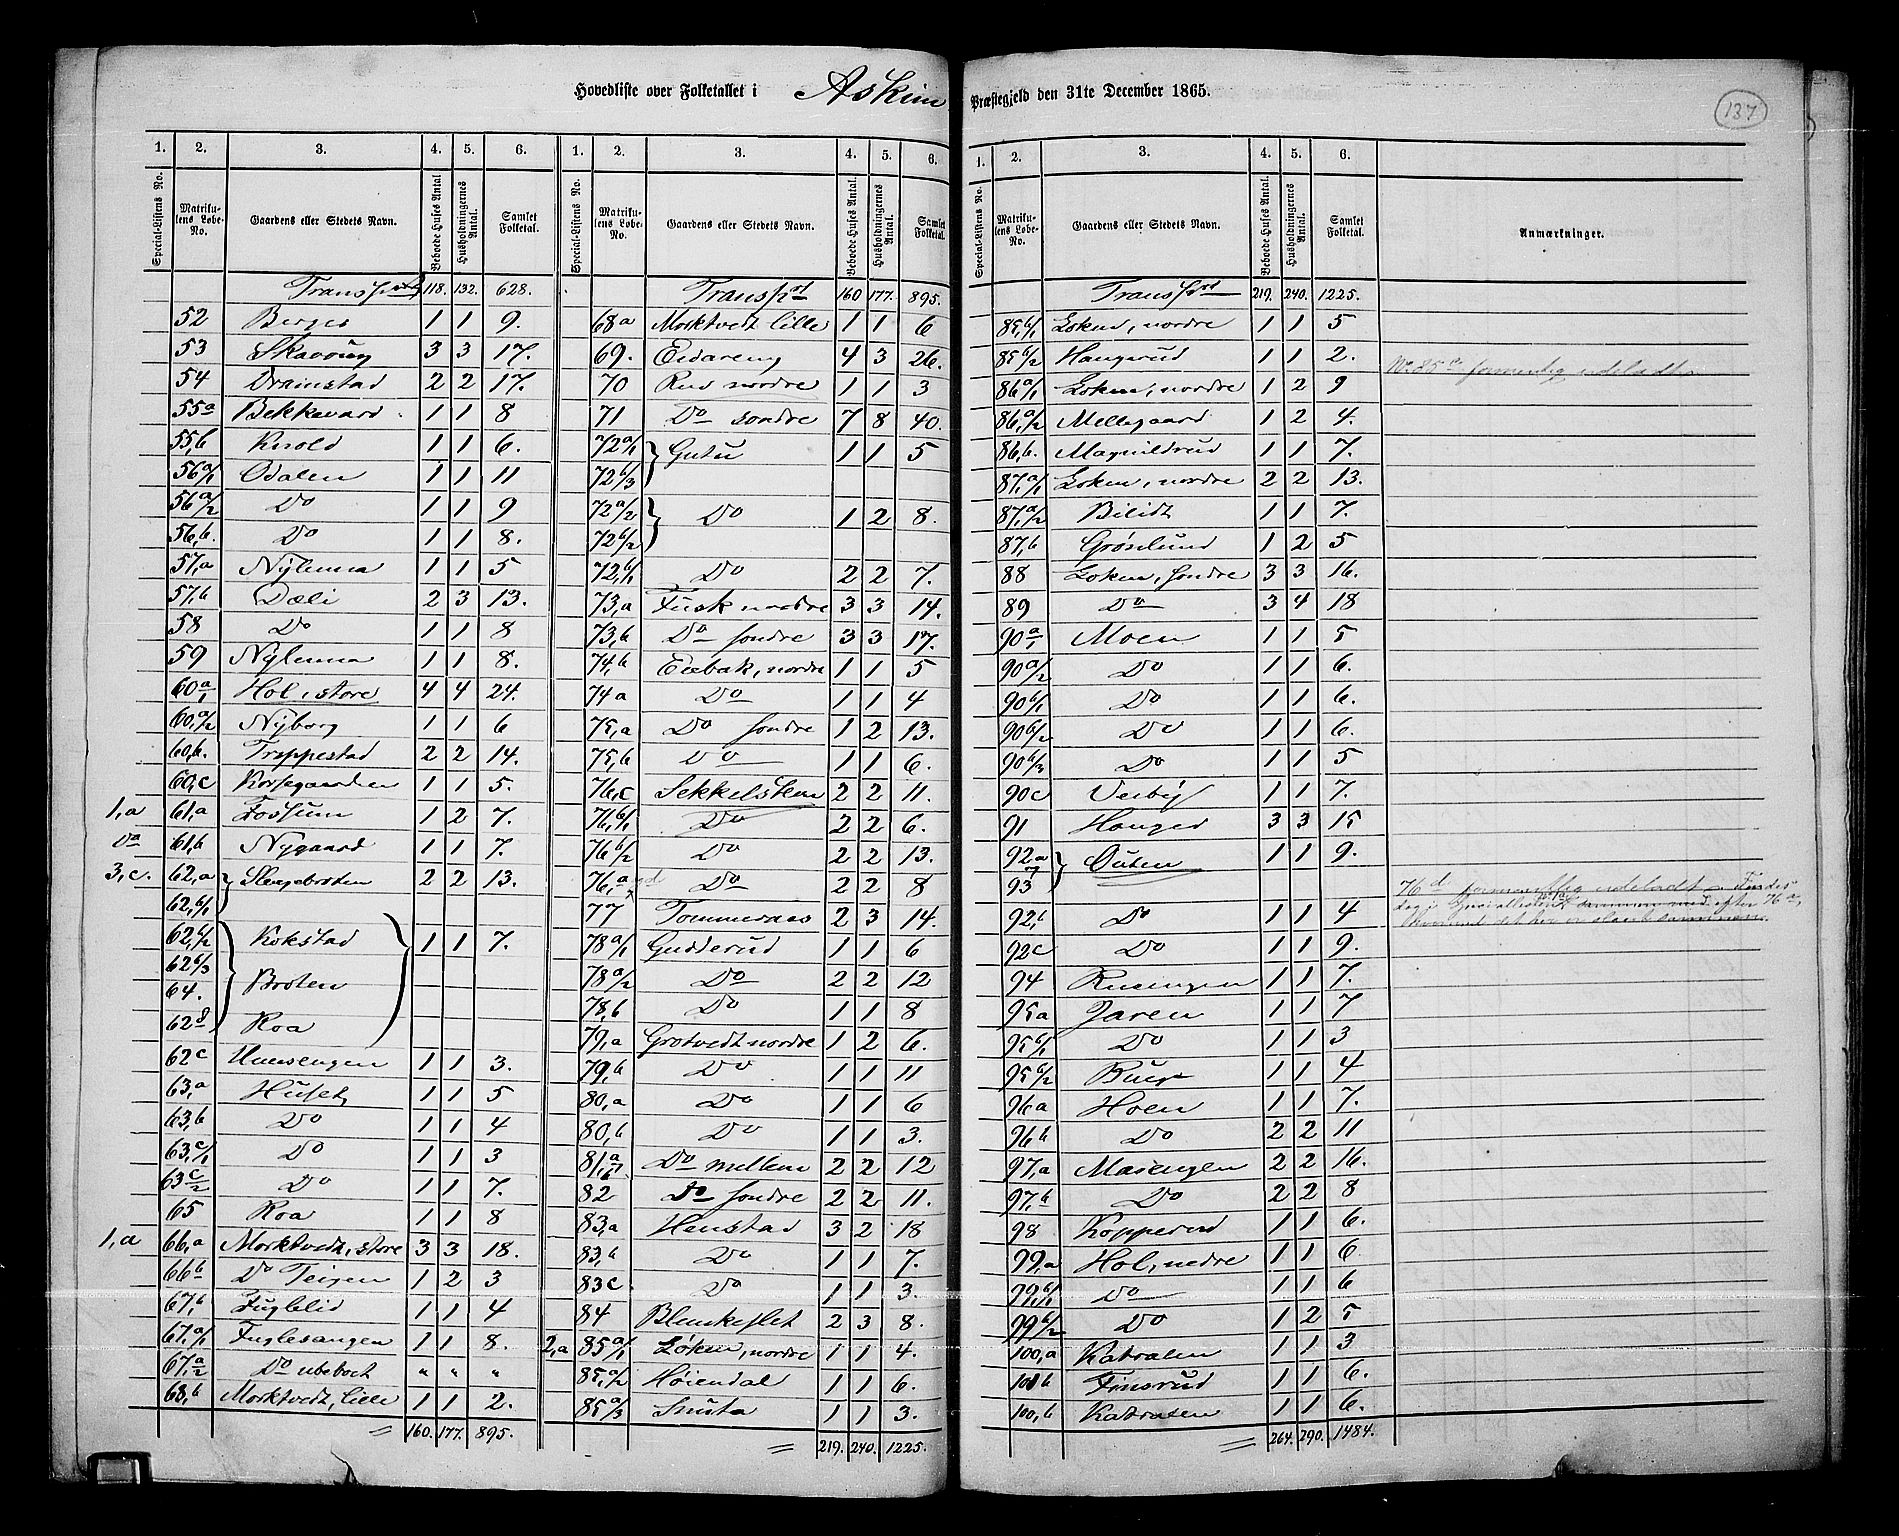 Hovedliste over Folketallet i Askim Præstegjeld den 31te December 1865.
137
1. 2. 3. 4. 5. 6.
Special-Listens No. Matrikulens Løbe-No. Gaardens eller Stedets Navn. Beboede Huses Antal. Husholdningernes Antal. Samlet Folketal.
Transport 118. 132. 628.
52 Berger 1 1 9.
53 Skavoug 3 3 17.
54 Drainstad 2 2 17.
55a Bekkevard 1 1 8
55,b Knold 1 1 6.
56a/1 Odalen 1 1 11
56a/2 Do 1 1 9
56,b. Do 1 1 8.
57,a Nylenna 1 1 5
57,b Dæli 2 3 13.
58 Do 1 1 8
59 Nylenna 1 1 8.
60a/1 Hol, store 4 4 24.
60,a/2 Nyborg 1 1 6
60,b. Trippestad 2 2 14.
60,c Korsegaarden 1 1 5.
1,a 61,a Fossum 1 2 7.
Do 61,b Nygaard 1 1 7.
3,c. 62,a Slengebroten 2 2 13.
62,b/1
62,b/2 Kokstad 1 1 7.
62b/3
64. Broten
62d Roa
62c Hansengen 1 1 3.
63,a Huset 1 1 5
63,b Do 1 1 4
63,c/1 Do 1 1 3
63c/2 Do 1 1 7.
65 Roa 1 1 8
1,a 66,a Morktvedt, store 3 3 18.
66b Do Teigen 1 2 3
67,b Fuglelid 1 1 4
67,a/1 Fuglesangen 1 1 8.
67a/2 Do ubeboet " " "
68,b Morktvedt, lille 1 1 2.
= 160. 177. 895.
1. 2. 3. 4. 5. 6.
Special-Listens No. Matrikulens Løbe-No. Gaardens eller Stedets Navn. Beboede Huses Antal. Husholdningernes Antal. Samlet Folketal.
Transport 160 177. 895.
68a Morktvedt lille 1 1 6
69. Eidareng 4 3 26.
70 Rud nordre 1 1 3
71 Do sondre 7 8 40.
72a/1 Gutu 1 1 5
72b/3
72a/2 Do 1 2 8.
72b/2
72,b/1 Do 2 2 7.
73,a Fusk nordre 3 3 14.
73,b Do sondre 3 3 17.
74,b Eiebak, nordre 1 1 5
74a Do 1 1 4
75,a Do sondre 1 2 13.
75,b Do 1 1 6.
76,c Sekkelsten 2 2 11.
76,b/1 Do 2 2 6.
76b/2 Do 2 2 13.
76,a d Do 2 2 8
77 Tommeraas 2 3 14.
78a/1 Gudderud 1 1 6
78a/2 Do 2 2 12
78,b Do 1 1 8
79,a Grotvedt nordre 1 2 6.
79,b Do 1 1 11
80,a Do 1 1 6
80,b Do 1 1 3.
81,a Do mellem 2 2 12
82 Do sondre 2 2 11.
83,a Henstad 3 2 18
83,b Do 1 1 7.
83c Do 1 1 3.
84 Blenkeslet 2 3 8.
2,a 85a/1 Løken, nordre 1 1 4.
85,a/2 Høiendal 1 1 6.
85a/3 Snusta 1 1 3.
= 219. 240. 1225.
1. 2. 3. 4. 5. 6.
Special-Listens No. Matrikulens Løbe-No. Gaardens eller Stedets Navn. Beboede Huses Antal. Husholdningernes Antal. Samlet Folketal. Anmærkninger.
Transport 219. 240. 1225.
85,b/1 Loken, nordre 1 1 5
85b/2 Haugerud 1 1 2.
No 85c formentlig udeladt
86a/1 Loken, nordre 1 2 9
86,a/2 Mellegaard 1 2 4.
86,b. Magnildrud 1 1 7.
87,a/1 Loken, nordre 2 2 13.
87,a/2 Bilidt 1 1 7.
87,b Grøslund 1 2 5
88 Loken, sondre 3 3 16.
89 Do 3 4 18
90a/1 Moen 1 1 5
90a/2 Do 1 1 6.
90b/1 Do 1 1 6.
90b/2 Do 1 1 6.
90b/3 Do 1 1 5
90c Veiby 1 1 7.
91 Hauger 3 3 15
92a Outen 1 1 9.
93
76d formentlig udeladt
92,b Do 1 1 4
92c Do 1 1 9.
94 Rusengen 1 1 7.
95a Jaren 1 1 7
95b/1 Do 1 1 3
95b/2 Bugr 1 1 4
96a Hoen 1 1 7.
96b Do 2 2 11
97,a Masengen 2 2 16.
97,b Do 2 2 8
98 Kopperud 1 1 6.
99,a Hol, nedre 1 1 6
99,b/1 Do 1 1 6
99b/2 Do 1 2 5
100,a Katralen 1 1 3
101b Finsrud 1 1 6.
100,b Katralen 1 1 6.
= 264. 290. 1484.